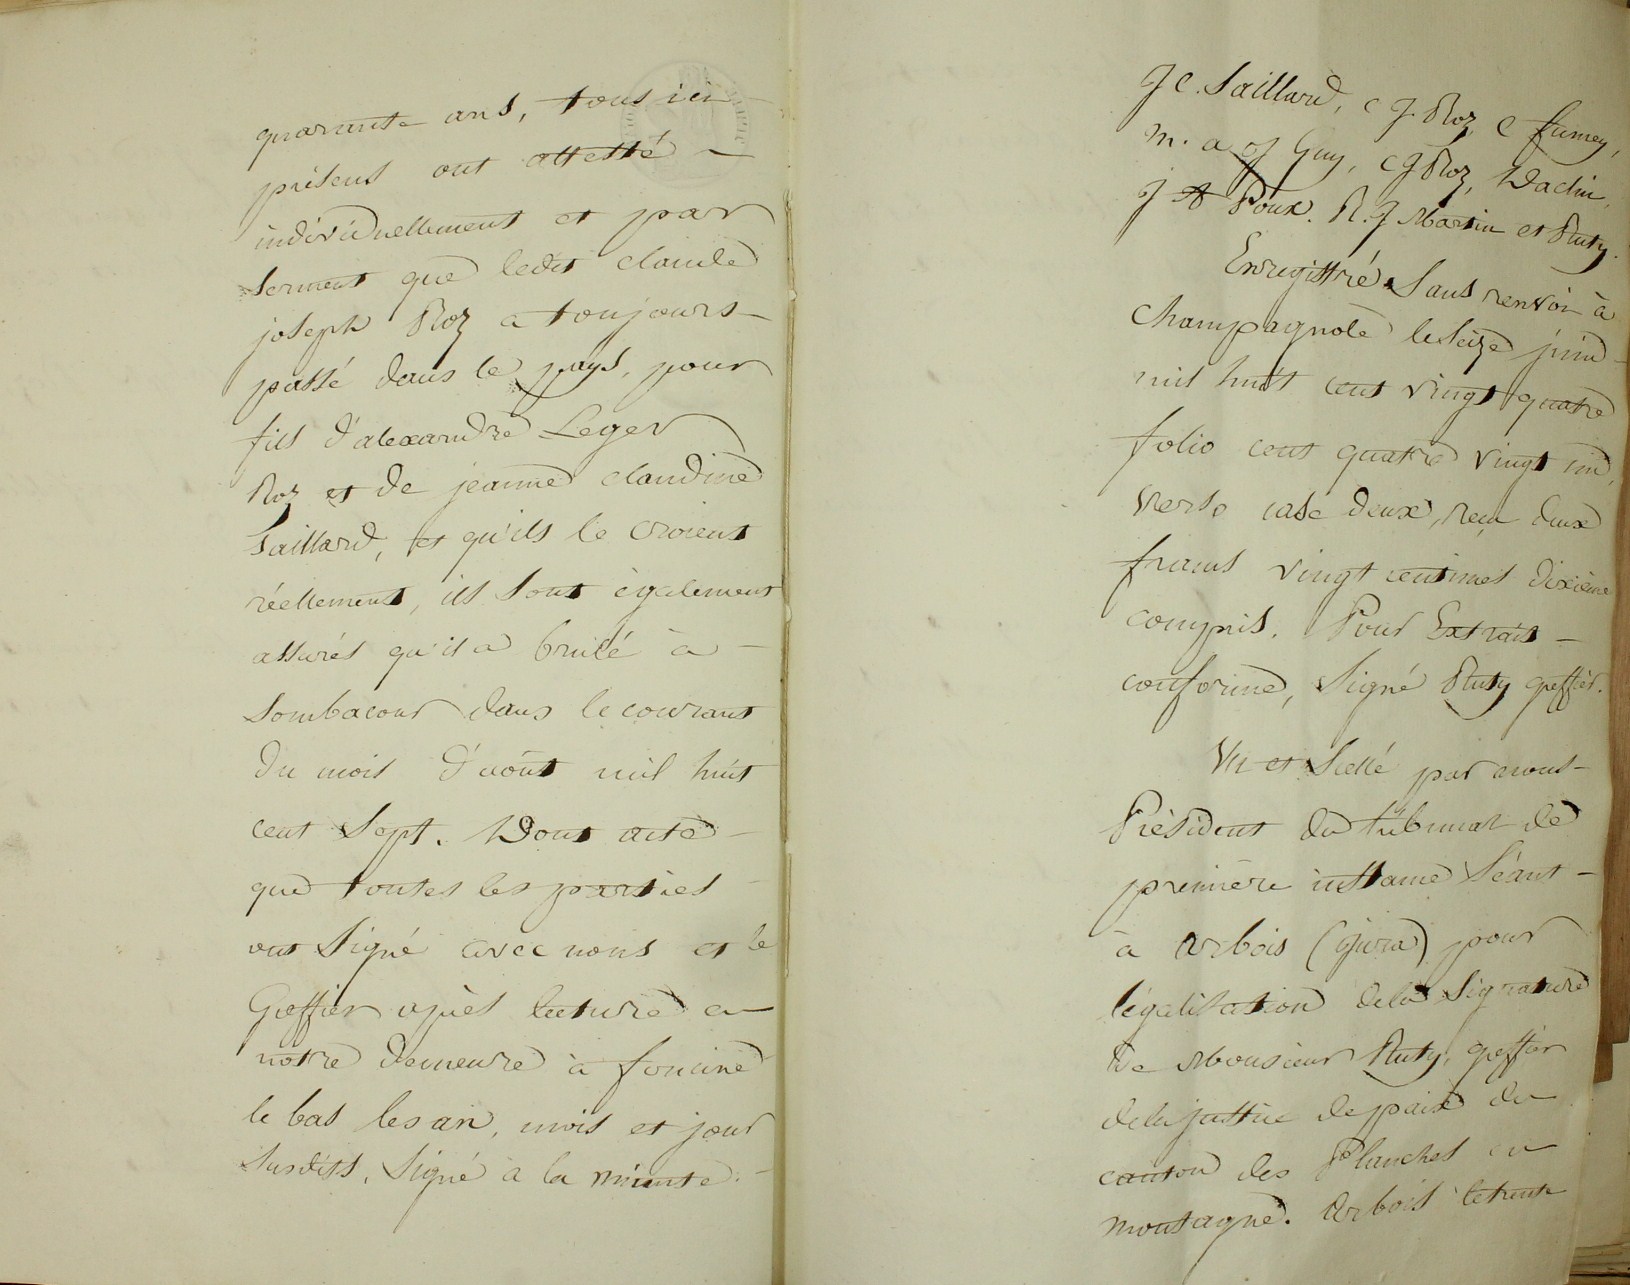 quarante ans, tous ici
présens ont attesté –
individuellement et par
serment que ledit claude
joseph Roz a toujours –
passé dans le pays, pour
fils d'alexandre Leger
Roz et de jeanne claudine
Saillard, et qu'ils le croient
réellement, ils sont également
assurés qu'il a brulé à –
Sombacour dans le courant
du mois d'août mil huit
cent sept. Dont acte –
que toutes les parties –
ont signé avec nous et le
Greffier après lecture en
notre demeure à foncine
le bas les an, mois et jour
susdits. Signé à la minute. –
J C. Saillard, C J. Roz, C fumey,
m. a J Guy, C J Roz, Dadin,
J A Poux. R. J Martin et Ruty.
Enregistré sans renvoi à
Champagnole le seize juin –
mil huit cent vingt quatre
folio cent quatre vingt un,
verso case deux, reçu deux
francs vingt centimes dixième
compris. Pour Extrait –
conforme, signé Ruty greffier.
Vu et Scellé par nous –
Président du tribunal de
première instance séant –
à arbois (jura) pour
légalisation de la signature
de Monsieur Ruty, greffier
de la justice de paix du
canton des Planches en
montagne. arbois le trente